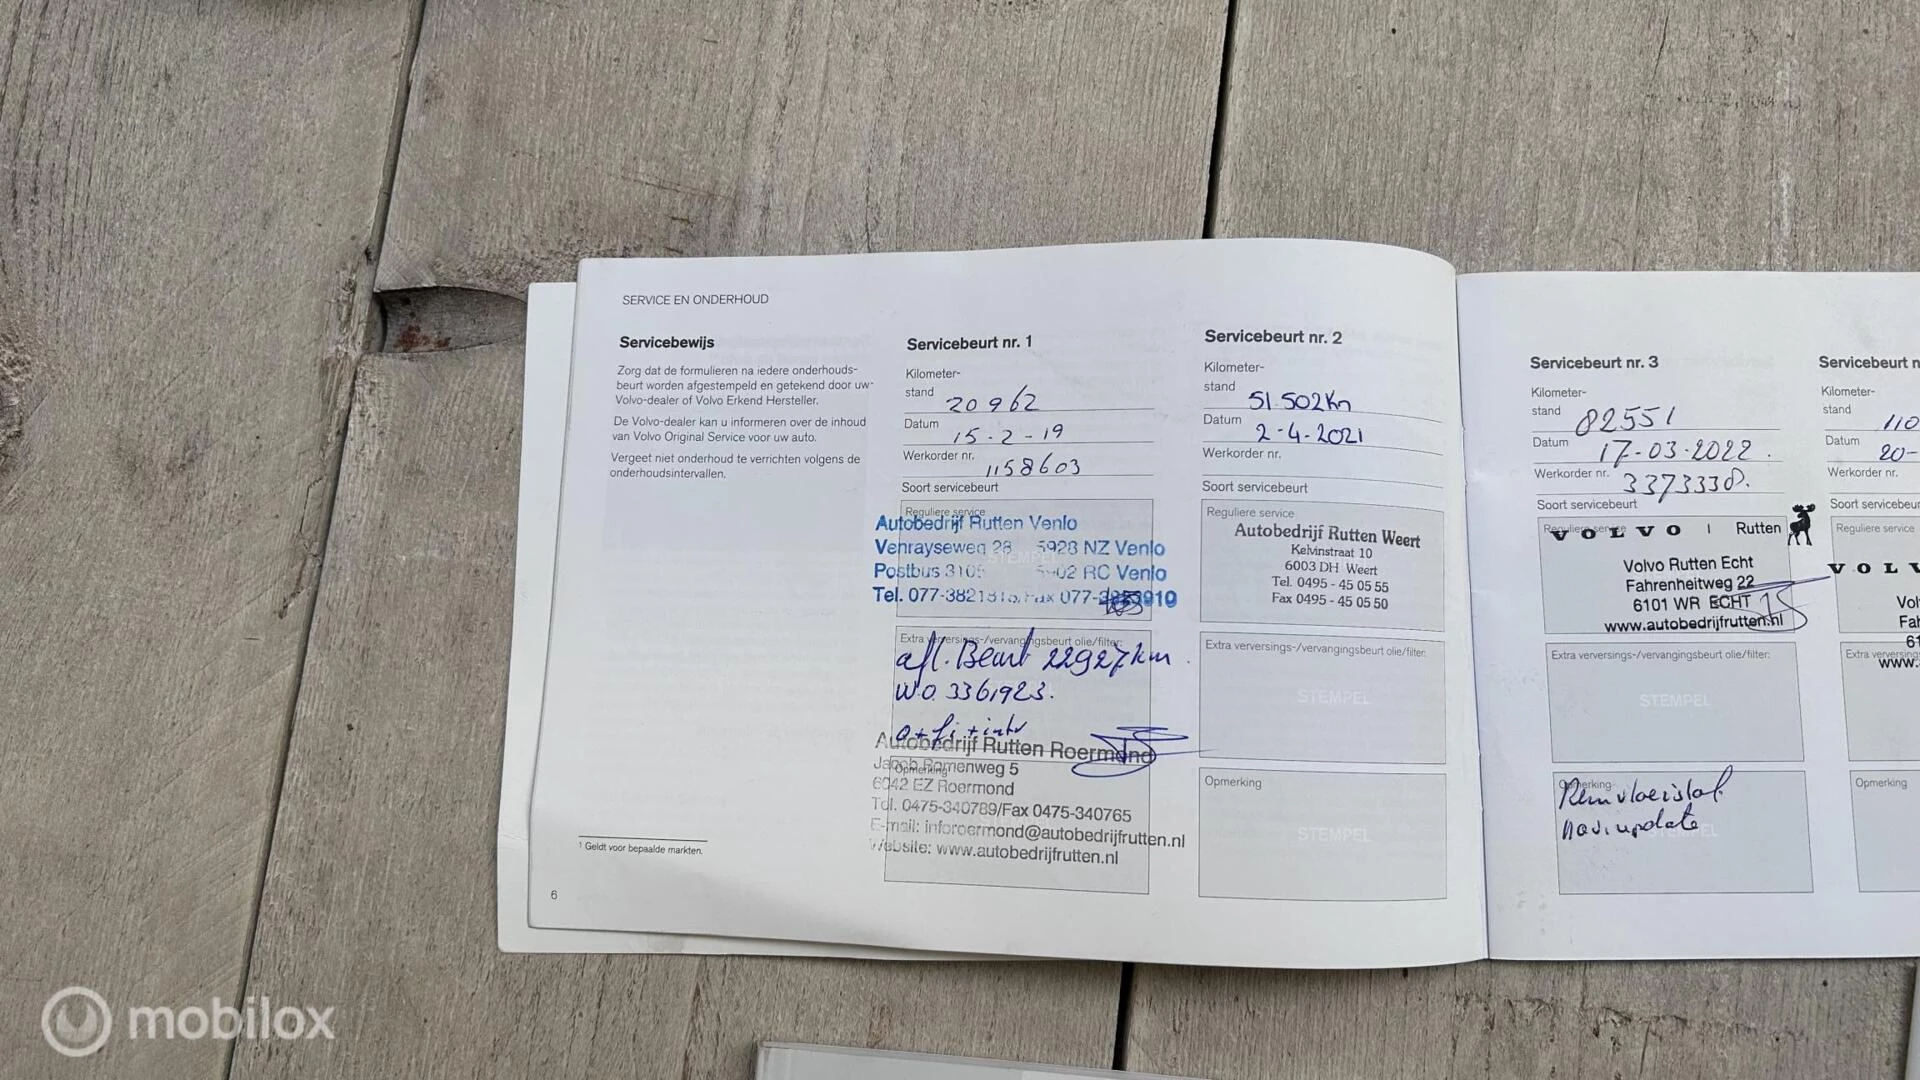 SERVICE EN ONDERHOUD
Servicebewijs
Zorg dat de formulieren na iedere onderhouds-
beurt worden afgestempeld en getekend door uw
Volvo-dealer of Volvo Erkend Hersteller.
De Volvo-dealer kan u informeren over de inhoud
van Volvo Original Service voor uw auto.
Vergeet niet onderhoud te verrichten volgens de
onderhoudsintervallen.
1 Geldt voor bepaalde markten.
6
Servicebeurt nr. 1
Kilometer-
stand 20962
Datum 15-2-19
Werkorder nr. 1158603
Soort servicebeurt
Reguliere service
Autobedrijf Rutten Venlo
Venrayseweg 28 5928 NZ Venlo
Postbus 5902 RC Venlo
Tel. 077-3821818/Fax 077-
Extra verversings-/vervangingsbeurt olie/filter:
afl. Beurt 22927km
W.O. 3361923.
Autobedrijf Rutten Roermond
Opmerking
Jacob Romenweg 5
6042 EZ Roermond
Tel. 0475-340789/Fax 0475-340765
E-mail: inforoermond@autobedrijfrutten.nl
Website: www.autobedrijfrutten.nl
Servicebeurt nr. 2
Kilometer-
stand 51.502Km
Datum 2-4-2021
Werkorder nr.
Soort servicebeurt
Reguliere service
Autobedrijf Rutten Weert
Kelvinstraat 10
6003 DH Weert
Tel. 0495 - 45 05 55
Fax 0495 - 45 05 50
Extra verversings-/vervangingsbeurt olie/filter:
STEMPEL
Opmerking
STEMPEL
Servicebeurt nr. 3
Kilometer-
stand 82551
Datum 17-03-2022.
Werkorder nr. 3373338.
Soort servicebeurt
Reguliere service
VOLVO | Rutten
Volvo Rutten Echt
Fahrenheitweg 22
6101 WR ECHT
www.autobedrijfrutten.nl
Extra verversings-/vervangingsbeurt olie/filter:
STEMPEL
Opmerking
Remvloeistof
navi update
STEMPEL
Servicebeurt n
Kilometer-
stand 110
Datum 20-
Werkorder nr.
Soort servicebeur
Reguliere service
VOLV
Vol
Fa
61
Extra verversing
www.
Opmerking
mobilox